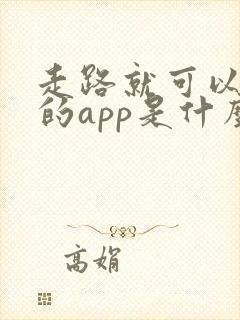 走路就可以
的app是什么
高娟